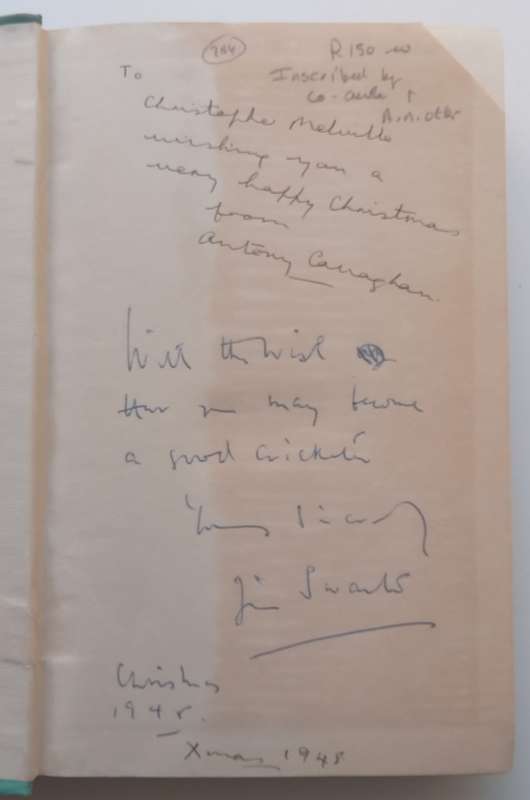 784
R150
Inscribed by
co-author
A.N. other
To
Christopher Melville
wishing you a
very happy Christmas
from
Antony Callaghan.
With the wish
that you may become
a good cricketer
Yours sincerely
Jim Swanton
Christmas
1948.
Xmas 1948